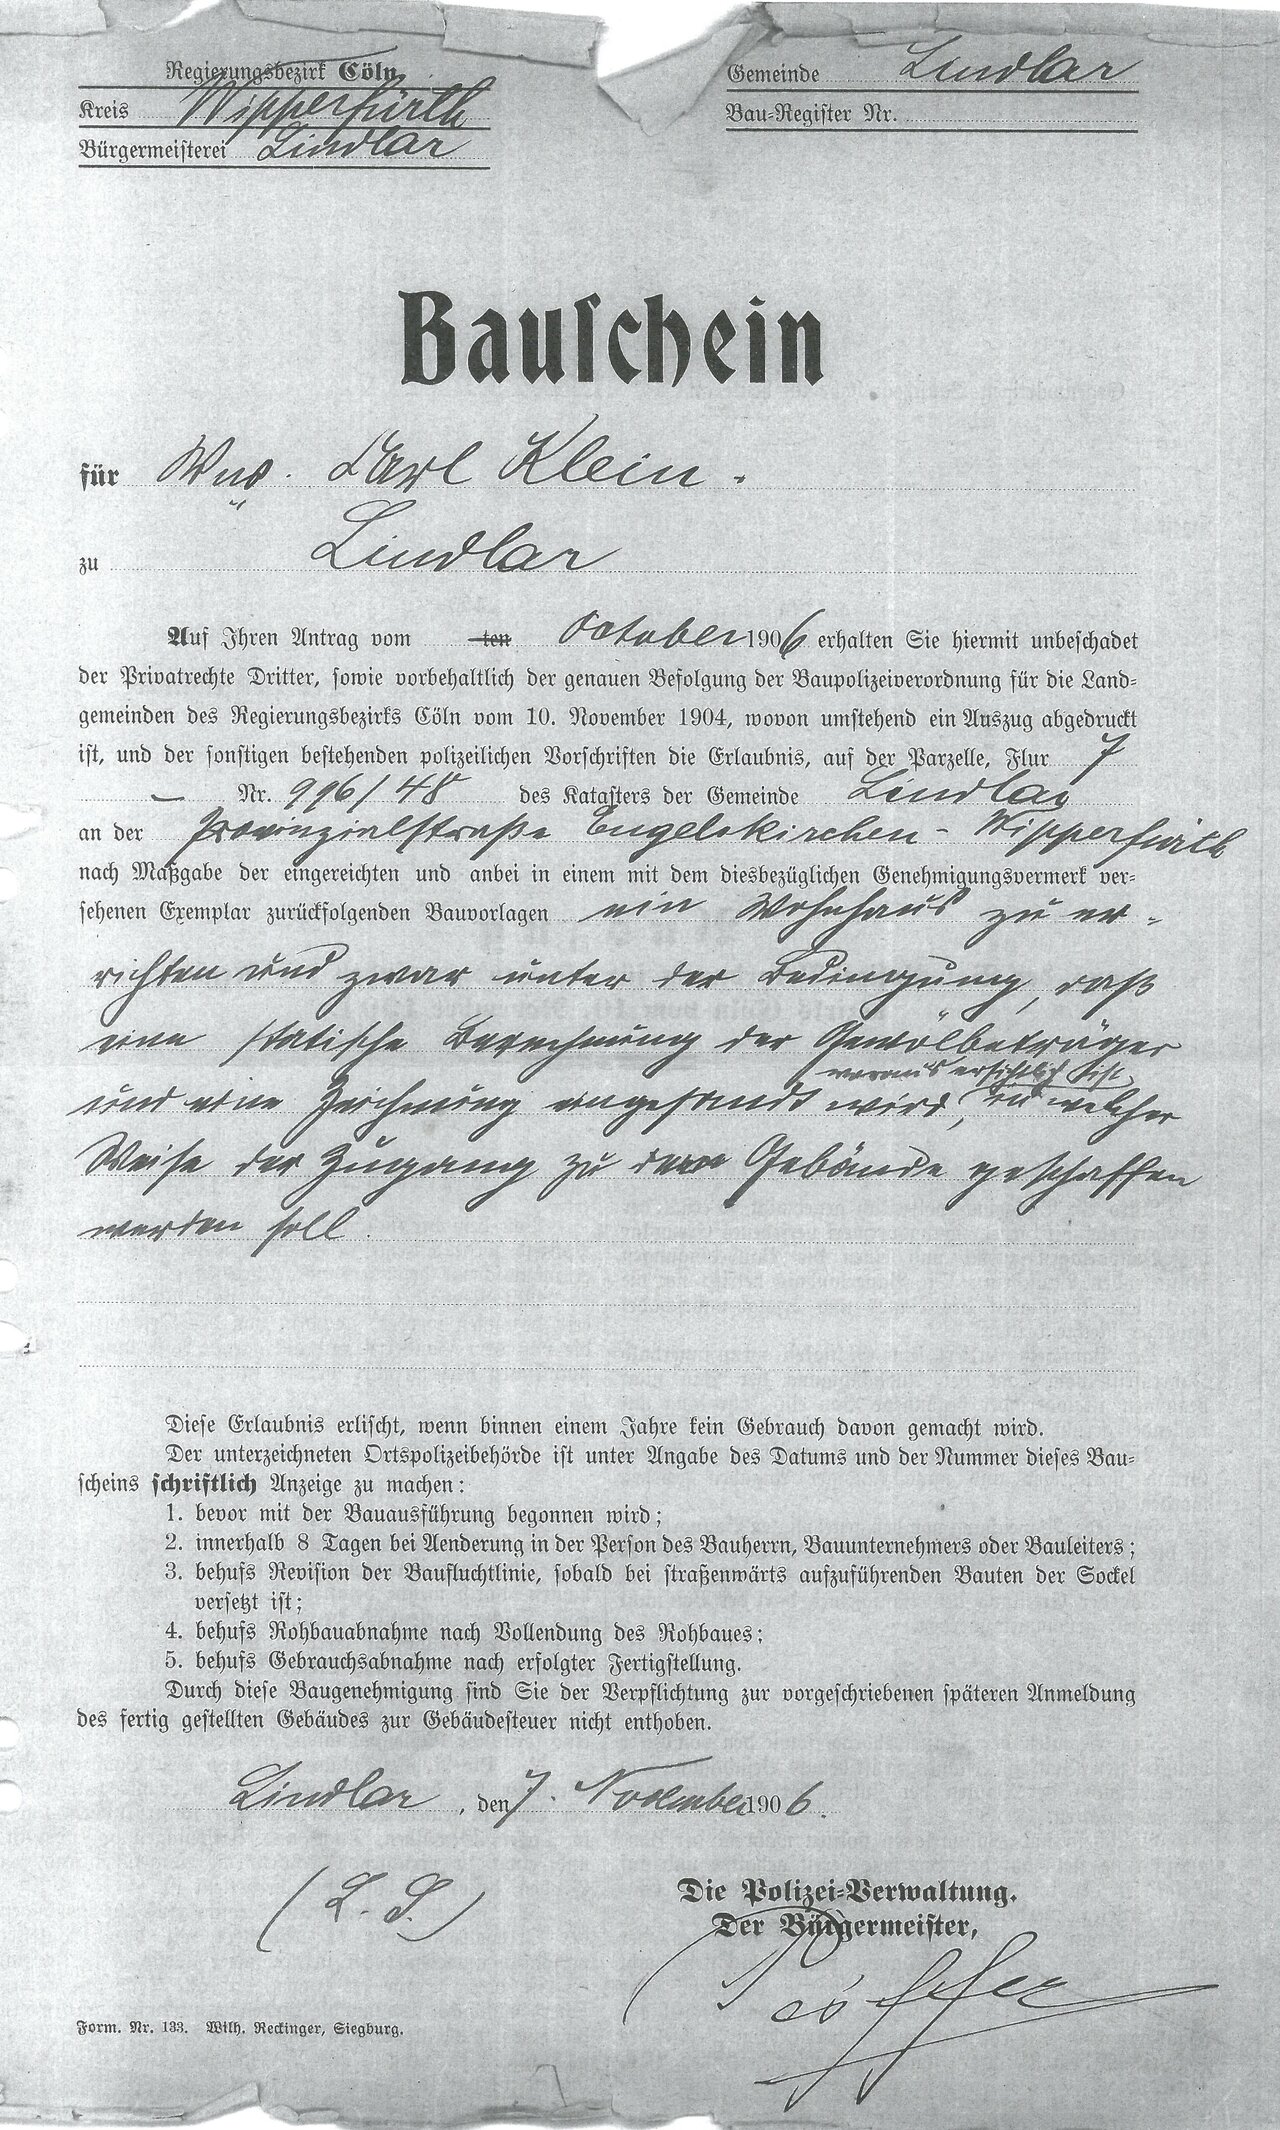 Regierungsbezirk Cöln
Kreis Wipperfürth
Bürgermeisterei Lindlar
Gemeinde Lindlar
Bau-Register Nr.
Bauschein
für Wwe. Carl Klein.
zu Lindlar
Auf Ihren Antrag vom ten October 1906 erhalten Sie hiermit unbeschadet
der Privatrechte Dritter, sowie vorbehaltlich der genauen Befolgung der Baupolizeiverordnung für die Land-
gemeinden des Regierungsbezirks Cöln vom 10. November 1904, wovon umstehend ein Auszug abgedruckt
ist, und der sonstigen bestehenden polizeilichen Vorschriften die Erlaubnis, auf der Parzelle, Flur 7
— Nr. 996/48 des Katasters der Gemeinde Lindlar
an der Provinzialstraße Engelskirchen - Wipperfürth
nach Maßgabe der eingereichten und anbei in einem mit dem diesbezüglichen Genehmigungsvermerk ver-
sehenen Exemplar zurückfolgenden Bauvorlagen ein Wohnhaus zu er-
richten und zwar unter der Bedingung, daß
eine statische Berechnung der Gewölbeträger
woraus ersichtlich ist,
und eine Zeichnung eingesandt wird, in welcher
Weise der Zugang zu dem Gebäude geschaffen
werden soll.
Diese Erlaubnis erlischt, wenn binnen einem Jahre kein Gebrauch davon gemacht wird.
Der unterzeichneten Ortspolizeibehörde ist unter Angabe des Datums und der Nummer dieses Bau-
scheins schriftlich Anzeige zu machen:
1. bevor mit der Bauausführung begonnen wird;
2. innerhalb 8 Tagen bei Aenderung in der Person des Bauherrn, Bauunternehmers oder Bauleiters;
3. behufs Revision der Baufluchtlinie, sobald bei straßenwärts aufzuführenden Bauten der Sockel
versetzt ist;
4. behufs Rohbauabnahme nach Vollendung des Rohbaues;
5. behufs Gebrauchsabnahme nach erfolgter Fertigstellung.
Durch diese Baugenehmigung sind Sie der Verpflichtung zur vorgeschriebenen späteren Anmeldung
des fertig gestellten Gebäudes zur Gebäudesteuer nicht enthoben.
Lindlar, den 7. November 1906.
(L. S.)
Die Polizei-Verwaltung.
Der Bürgermeister,
Form. Nr. 133. Wilh. Reckinger, Siegburg.